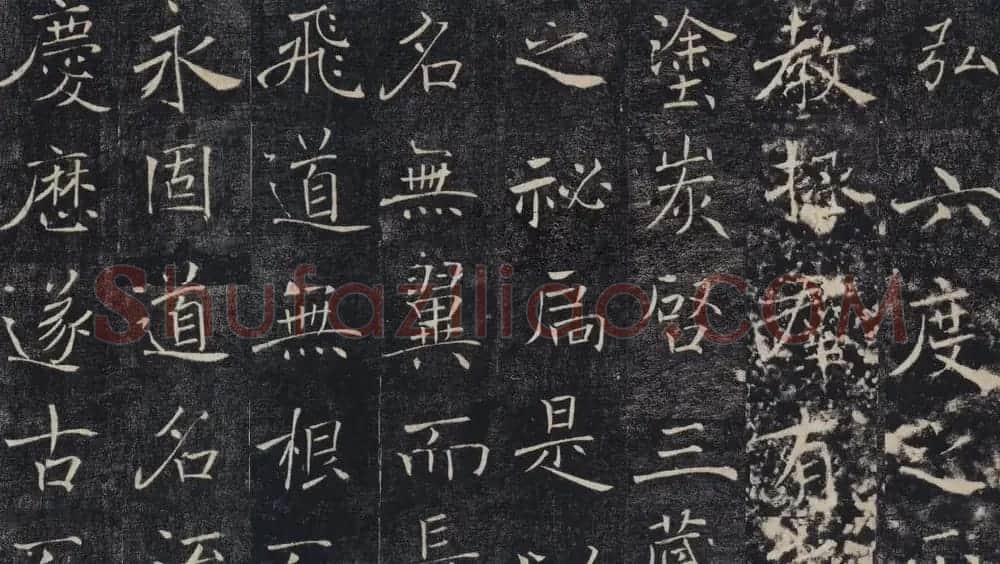 弘六度之
教拯羣有
塗炭啓三藏
之祕扃是以
名無翼而長
飛道無根而
永固道名流
慶歷遂古而
Shufaziliao.COM